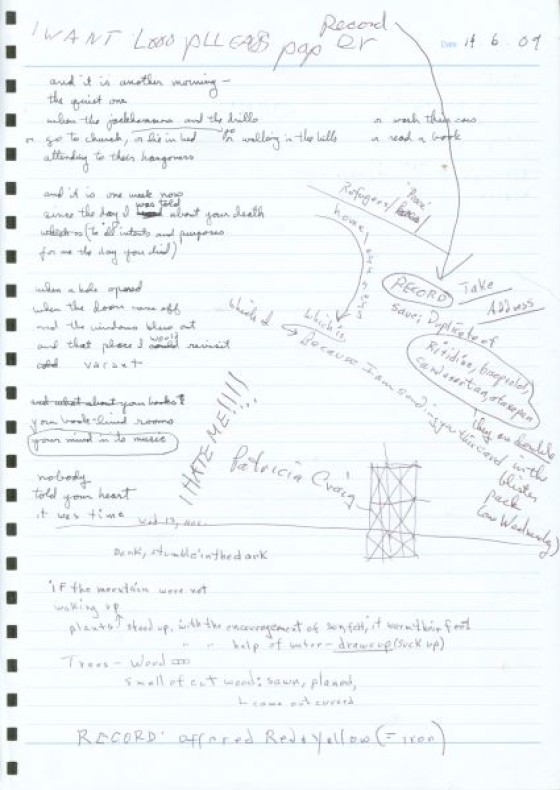 I WANT Looo pLLEASS pap er
Record
Date 14. 6. 09
and it is another morning –
the quiet one
when the jackhammers and the drills or wash their cars
or go to church, or lie in bed or go walking in the hills or read a book
attending to their hangovers
and it is one week now
since the day I was told about your death
(to all intents and purposes
for me the day you died)
when a hole opened
when the doors came off
and the windows blew out
and that place I would revisit
vacant
and what about your books?
your book-lined rooms
your mind in its music
nobody
told your heart
it was time
Refugees/
home/
RECORD Take
Address
save; Duplicate of
which is
Because I am sending you this card with
they are double
blister
pack
(on Wednesday)
I HATE ME!!!!!
Patricia Craig
Wed 13,
Drink, stumble in the dark
IF the mountain were not
waking up
plants stood up, with the encouragement of sunlight, it warm their feet
" " help of water – drawe up (suck up)
Trees – Wood
smell of cut wood: sawn, planed,
came out curved
RECORD: affored Red & yellow (= iron)